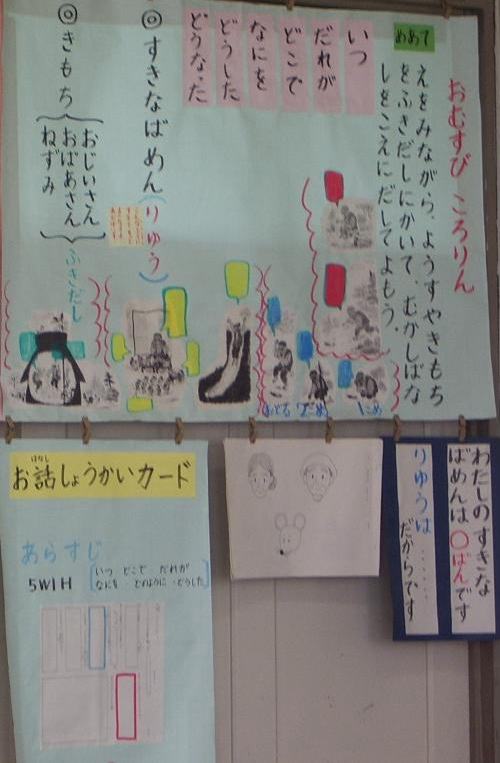 おむすびころりん
めあて
えをみながら、ようすやきもち
をふきだしにかいて、むかしばな
しをこえにだしてよもう。
いつ
だれが
どこで
なにを
どうした
どうなった
◎すきなばめん(りゆう)
◎きもち
おじいさん
おばあさん
ねずみ
ふきだし
わたしのすきな
ばめんは〇ばんです
りゆうは......
だからです
はなし
お話しょうかいカード
あらすじ
5W1H
いつ どこで だれが
なにを どのように どうした